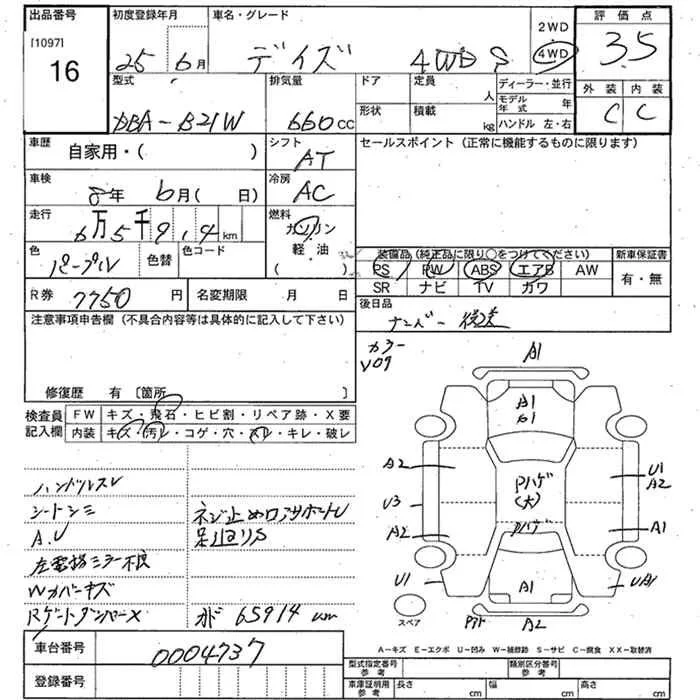 出品番号
[1097]
16
初度登録年月
25 6月
車名・グレード
デイズ 4WD S
2WD
4WD
評価点
3.5
外装 内装
C C
型式
DBA-B21W
排気量
660cc
ドア
形状
定員
人
積載
kg
ディーラー・並行
モデル年式 年
ハンドル 左・右
車歴
自家用・( )
シフト
AT
セールスポイント (正常に機能するものに限ります)
車検
8年 6月( 日)
冷房
AC
走行
6万5千9,4km
燃料
ガソリン
軽・油
( )
色
パープル
色替
色コード
装備品(純正品に限り○をつけてください)
PS PW ABS エアB AW
SR ナビ TV カワ
新車保証書
有・無
R券 7750円
名変期限 月 日
後日品
ナンバー 後送
注意事項申告欄 (不具合内容等は具体的に記入して下さい)
修復歴 有 〔箇所 〕
カラー
V09
検査員記入欄
FW キズ・飛石・ヒビ割・リペア跡・X要
内装 キズ・汚レ・コゲ・穴・スレ・キレ・破レ
ハンドルスレ
シートシミ
A.U
左電格ミラー不良
Wカバーキズ
Rゲートダンパー×
ネジ止めロアサポートU
足回りS
オド 65914 km
A1
A1
A2
U3
A2
U1
Pハゲ
(大)
Pハゲ
A1
U1
A2
A1
UA1
A2
スペア
A-キズ E-エクボ U-凹み W-補修跡 S-サビ C-腐食 XX-取替済
車台番号
0004737
登録番号
型式指定番号
参考
類別区分番号
参考
車庫証明用
参考
長さ cm
幅 cm
高さ cm